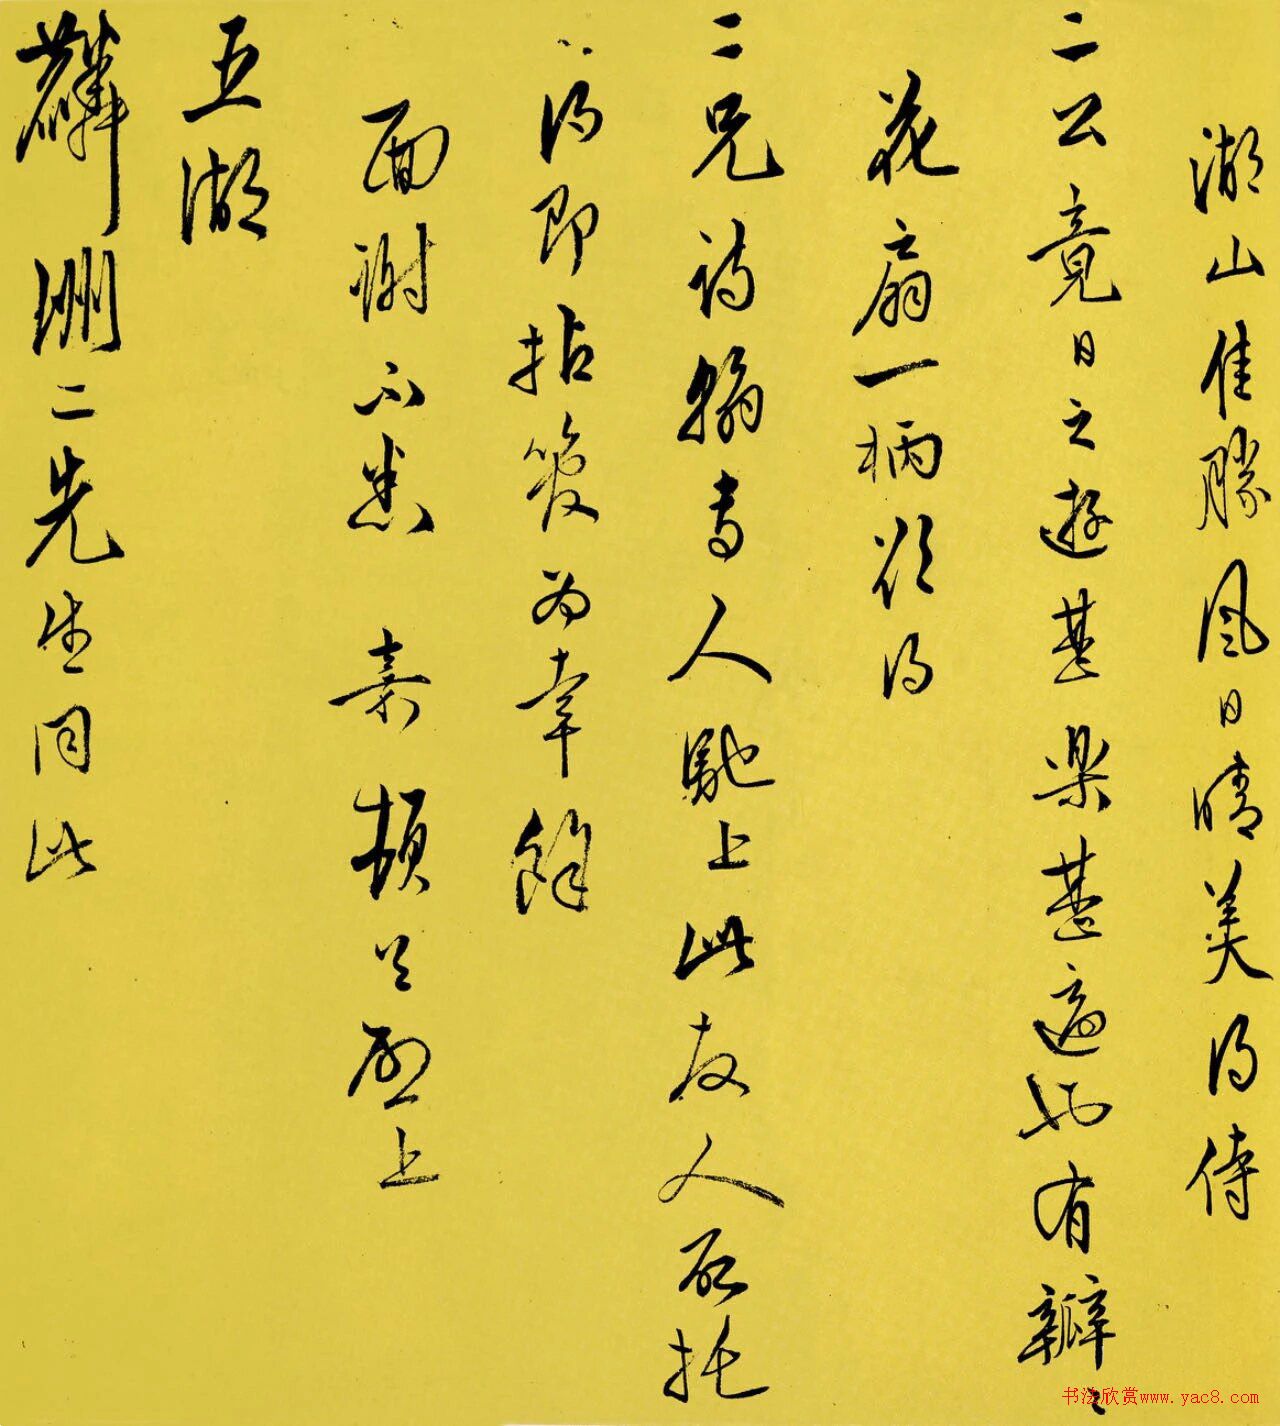 湖山佳勝風日晴美得侍
二公竟日之遊甚樂甚適有瓣〻
花扇一柄欲得
二兄詩翰專人馳上此友人所托
得即拈發為幸餘
面謝不悉 嘉頓首啟上
五湖
麟洲二先生同此
书法欣赏www.yac8.com